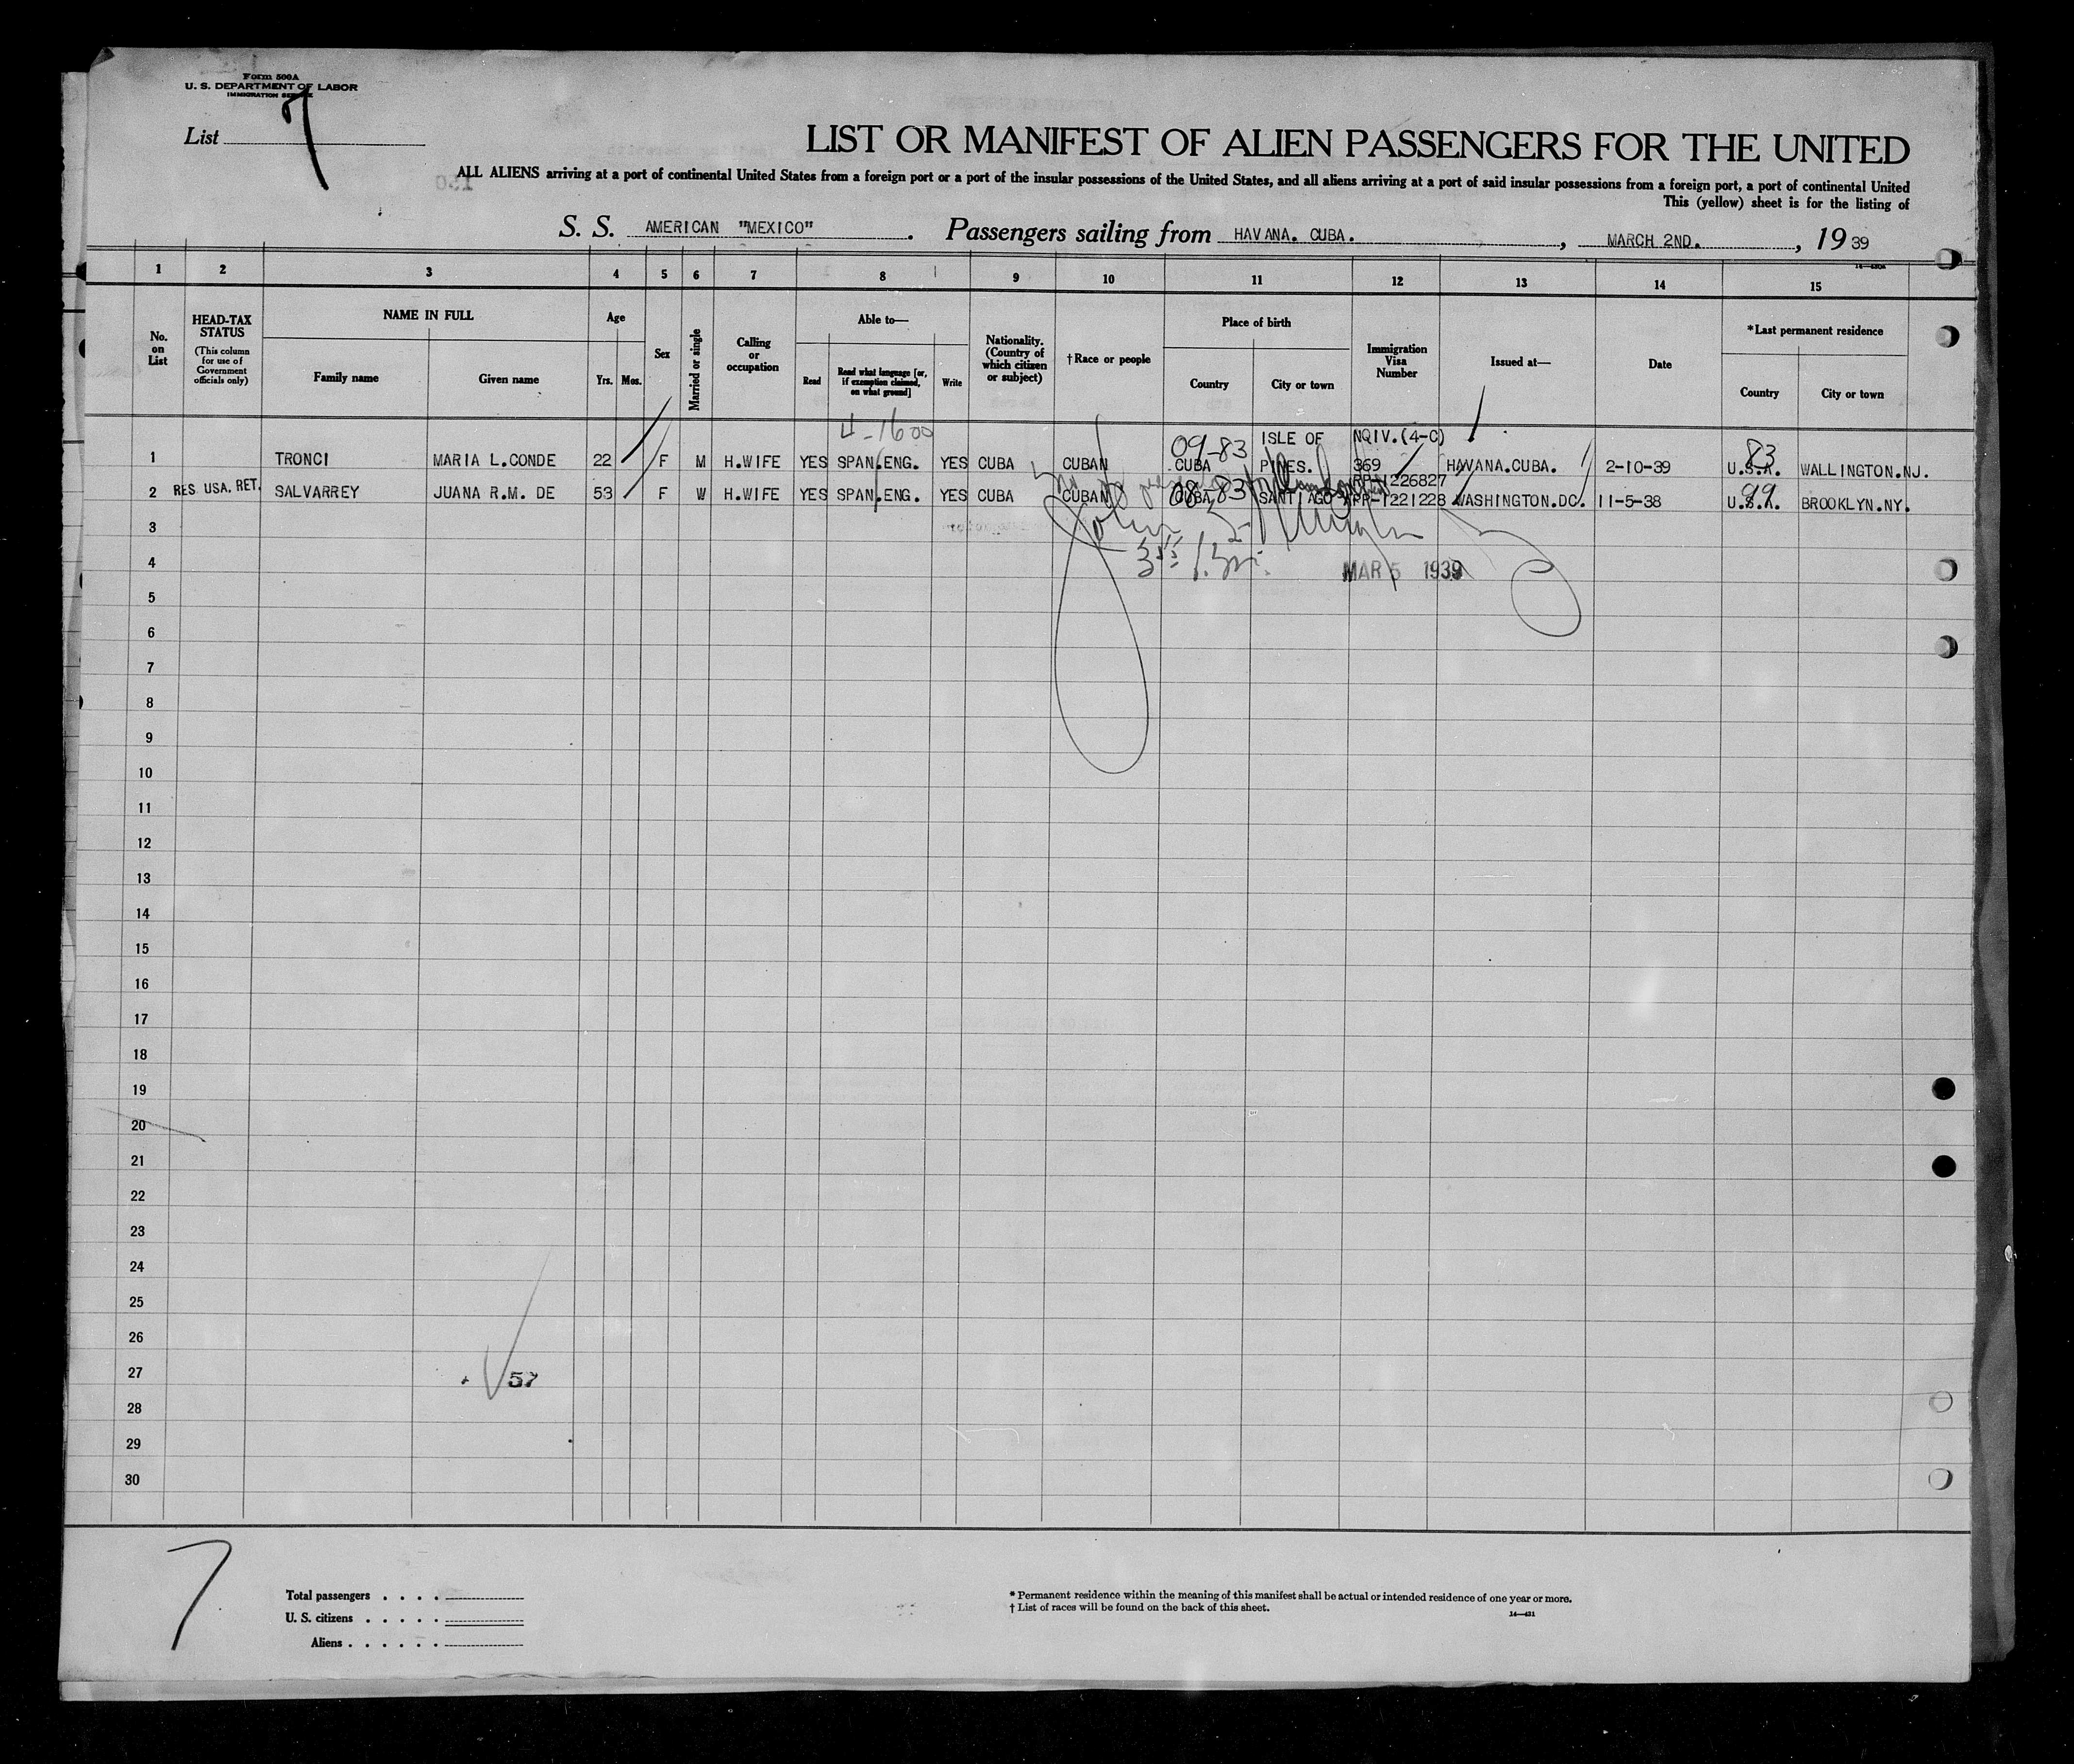 Form 500A
U. S. DEPARTMENT OF LABOR
IMMIGRATION SERVICE
List 7
LIST OR MANIFEST OF ALIEN PASSENGERS FOR THE UNITED
ALL ALIENS arriving at a port of continental United States from a foreign port or a port of the insular possessions of the United States, and all aliens arriving at a port of said insular possessions from a foreign port, a port of continental United
This (yellow) sheet is for the listing of
S. S. AMERICAN "MEXICO". Passengers sailing from HAVANA. CUBA. , MARCH 2ND. , 19 39
1 2 3 4 5 6 7 8 9 10 11 12 13 14 15
No. on List
HEAD-TAX STATUS
(This column for use of Government officials only)
NAME IN FULL
Family name
Given name
Age
Yrs. Mos.
Sex
Married or single
Calling or occupation
Able to—
Read
Read what language [or, if exemption claimed, on what ground]
Write
Nationality. (Country of which citizen or subject)
†Race or people
Place of birth
Country
City or town
Immigration Visa Number
Issued at—
Date
*Last permanent residence
Country
City or town
4-1600
09-83 ISLE OF NQIV.(4-C) 83
1 TRONCI MARIA L.CONDE 22 F M H.WIFE YES SPAN.ENG. YES CUBA CUBAN CUBA PINES. 369 HAVANA.CUBA. 2-10-39 U.S.A. WALLINGTON.NJ.
RP-1226827
08-83 99
2 RES. USA. RET. SALVARREY JUANA R.M. DE 53 F W H.WIFE YES SPAN.ENG. YES CUBA CUBAN CUBA SANTIAGO PP-1221228 WASHINGTON.DC. 11-5-38 U.S.A. BROOKLYN.NY.
3
4 MAR 5 1939
5
6
7
8
9
10
11
12
13
14
15
16
17
18
19
20
21
22
23
24
25
26
27 57
28
29
30
7
Total passengers . . . .
U. S. citizens . . . . .
Aliens . . . . . .
* Permanent residence within the meaning of this manifest shall be actual or intended residence of one year or more.
† List of races will be found on the back of this sheet.
14—431